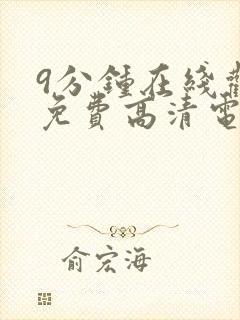 9分鍾在綫觀
免費高清電
俞宏海